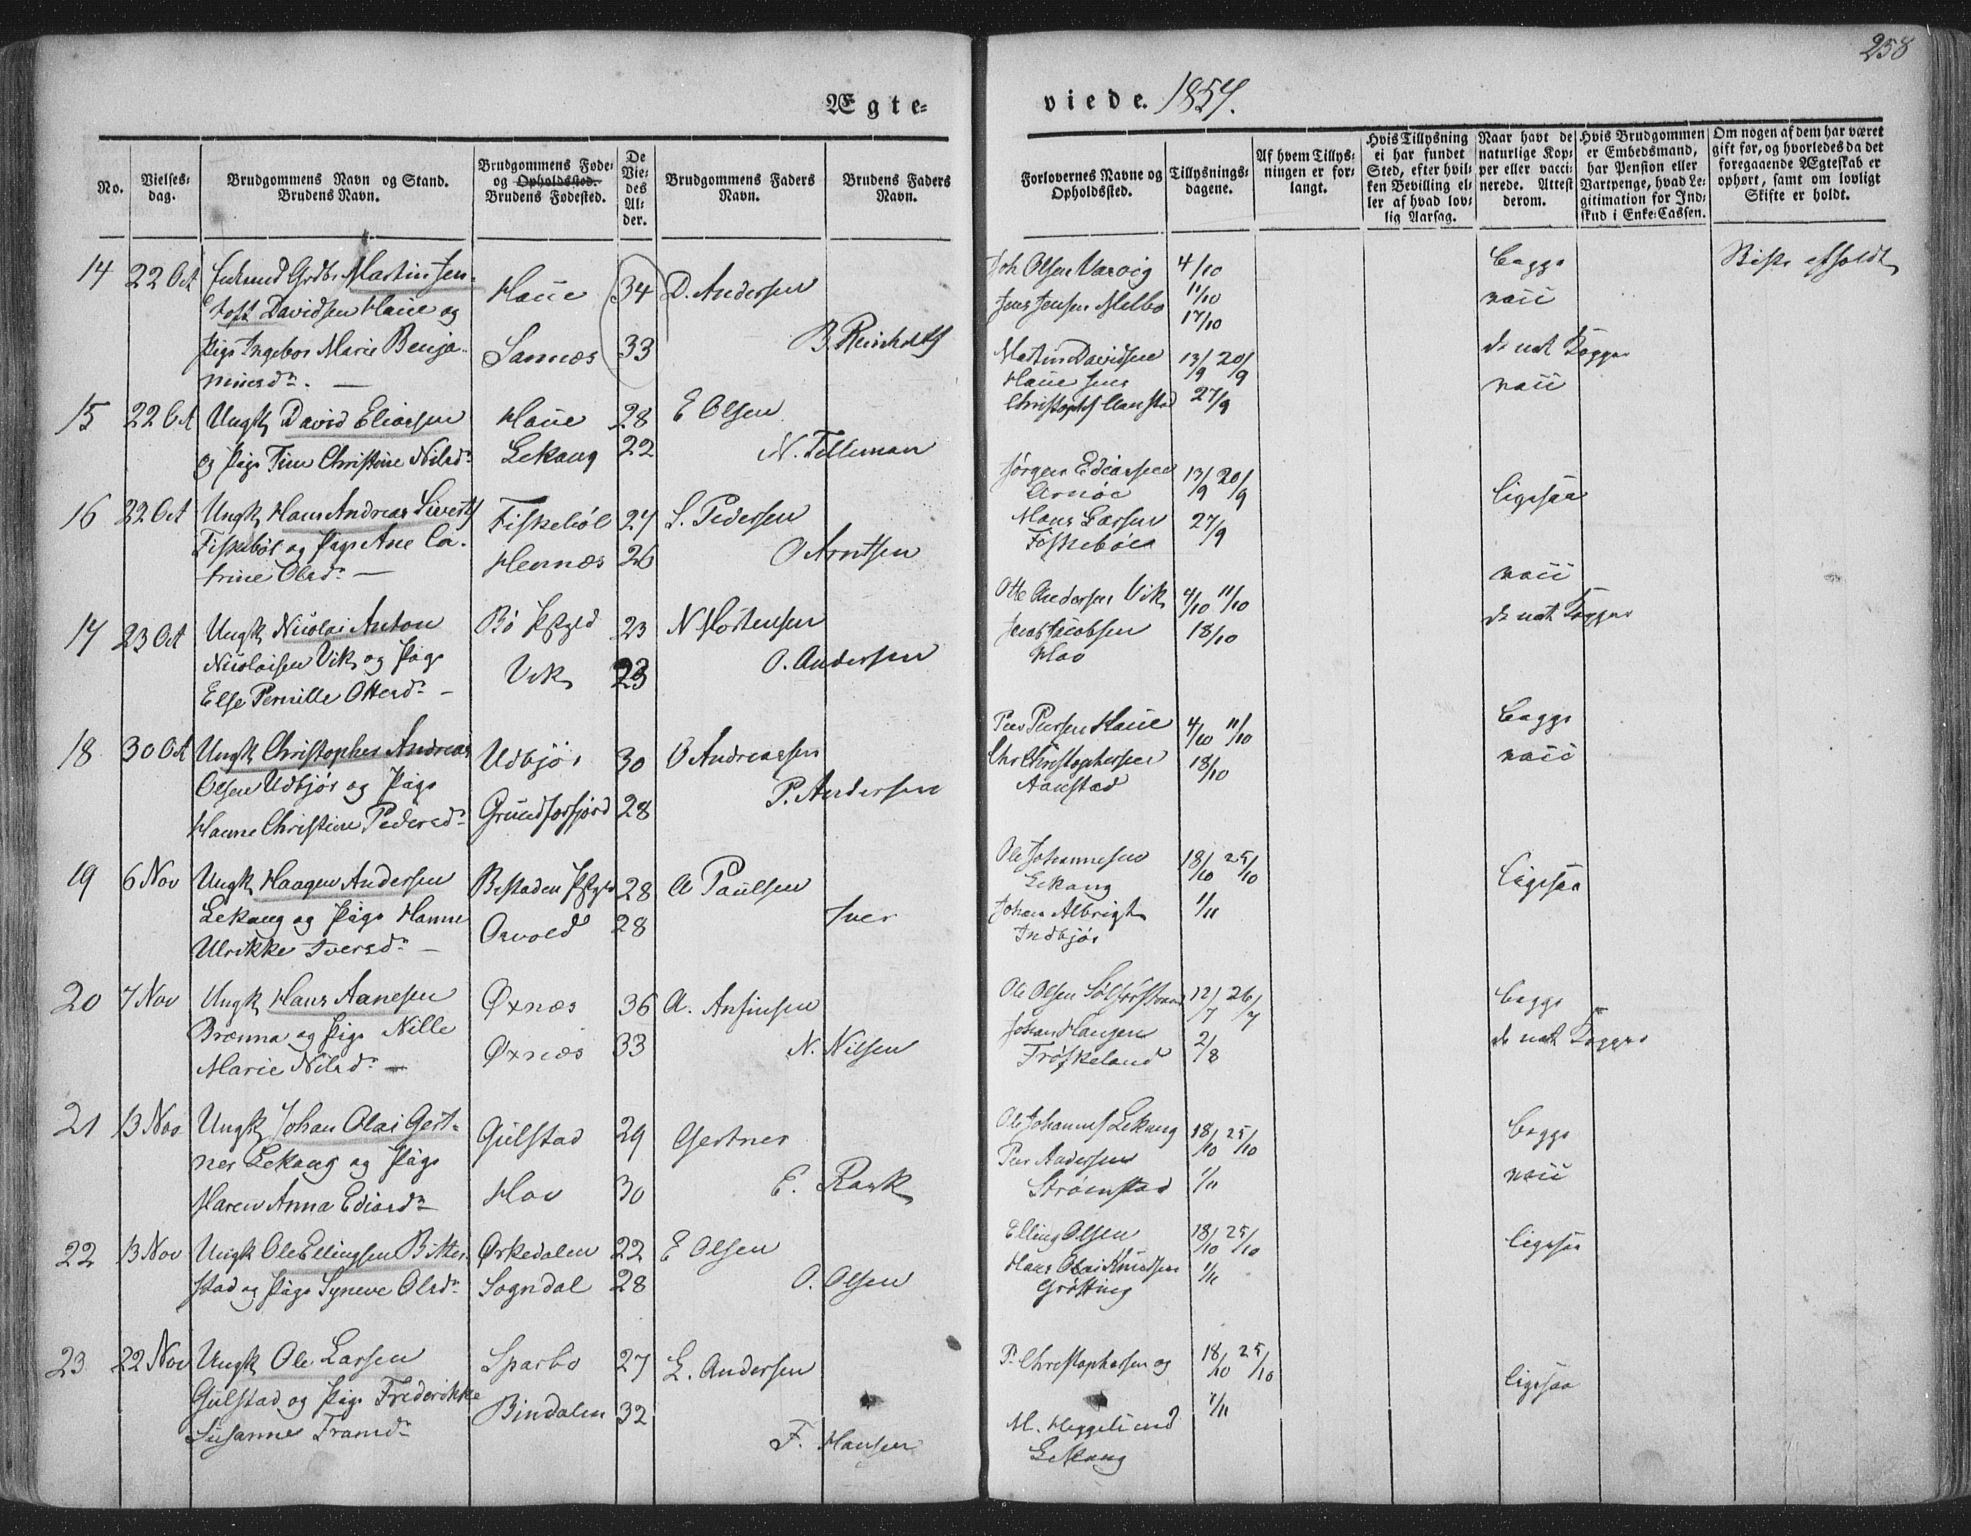 258
Ægte-
viede. 1857.
No.
Vielses-
dag.
Brudgommens Navn og Stand.
Brudens Navn.
Brudgommens Føde-
og Opholdssted.
Brudens Fødested.
De
Vie-
des
Al-
der.
Brudgommens Faders
Navn.
Brudens Faders
Navn.
Forlovernes Navne og
Opholdssted.
Tillysnings-
dagene.
Af hvem Tillys-
ningen er for-
langt.
Hvis Tillysning
ei har fundet
Sted, efter hvil-
ken Bevilling el-
ler af hvad lov-
lig Aarsag.
Naar havt de
naturlige Kop-
per eller vacci-
nerede. Attest
derom.
Hvis Brudgommen
er Embedsmand,
har Pension eller
Vartpenge, hvad Le-
gitimation for Ind-
skud i Enke-Cassen.
Om nogen af dem har været
gift før, og hvorledes da det
foregaaende Ægteskab er
ophørt, samt om lovligt
Skifte er holdt.
14 22 Oct Enkemd Grdbr Martin Jen-
toft Davidsen Haue og
Pige Ingebor Marie Benja-
minsdr.
Haue 34 D. Andersen
Sannæs 33 B. Reinholts
Joh Olsen Varvig 4/10
Jens Jensen Melbo 11/10
17/10
begge
vacc
Skifte afholdt
15 22 Oct Ungk David Eliassen
og Pige Fin Christine Nilsdr
Haue 28 E Olsen
Lekang 22 N. Tilleman
Martin Davidsen 13/9 20/9
Haue
Christophs Aanstad 27/9
d nat Kopper
vacc
16 22 Oct Ungk Hans Andreas Siverts
Fiskebøl og Pige Ane Ca-
trine Olsdr
Fiskebøl 27 S. Pedersen
Hennæs 26 O Arntsen
Jørgen Ediassen 13/9 20/9
Arnøe
Hans Larsen 27/9
Fiskebøl
ligesaa
17 23 Oct Ungk Nicolai Anton
Nicolaisen Vik og Pige
Else Pernille Ottersdr
Bø Pgjeld 23 N Mortensen
Vik 23 O. Andersen
Otte Andersen Vik 4/10 11/10
Jacob Jacobsen 18/10
Hov
vacc
d nat Kopper
18 30 Oct Ungk Christopher Andreas
Olsen Udbjør og Pige
Hanne Christine Pedersdr
Udbjør 30 O Andreassen
Grundforfjord 28 P. Andersen
Peer Persen Haue 4/10 11/10
Chr Christophersen 18/10
Aanstad
begge
vacc
19 6 Nov Ungk Haagen Andersen
Lekang og Pige Hanne
Ulrikke Iversdr
Bestaden Pgjeld 28 A Paulsen
Osvold 28 Iver
Ole Johannesen 18/10 25/10
Lekang
Johan Albrigt 1/11
Indbjør
Ligesaa
20 7 Nov Ungk Hans Aanesen
Brænna og Pige Nille
Marie Nilsdr
Øxnæs 36 A. Anfinsen
Øxnæs 33 N. Nilsen
Ole Olsen Solforstrand 12/7 26/7
Johan Hansen 2/8
Frøskeland
begge
d nat Kopper
21 13 Nov Ungk Johan Olai Gert-
ner Lekang og Pige
Maren Anna Ediasdr
Gulstad 29 Gertner
Hov 30 E. Rask
Ole Johanns Lekang 18/10 25/10
Peer Andersen
Strømstad 1/11
begge
vacc
22 13 Nov Ungk Ole Ellingsen Bitter-
stad og Pige Syneve Olsdr
Ørkedalen 22 E Olsen
Sogndal 28 O. Olsen
Elling Olsen 18/10 25/10
Hans Olai Knudsen 1/11
Grøtting
ligesaa
23 22 Nov Ungk Ole Larsen
Gulstad og Pige Frederikke
Susanne Framdr
Sparbo 27 L. Andersen
Bindalen 32 F. Hansen
P. Christophersen og 18/10 25/10
M. Heggelund 1/11
Lekang
ligesaa